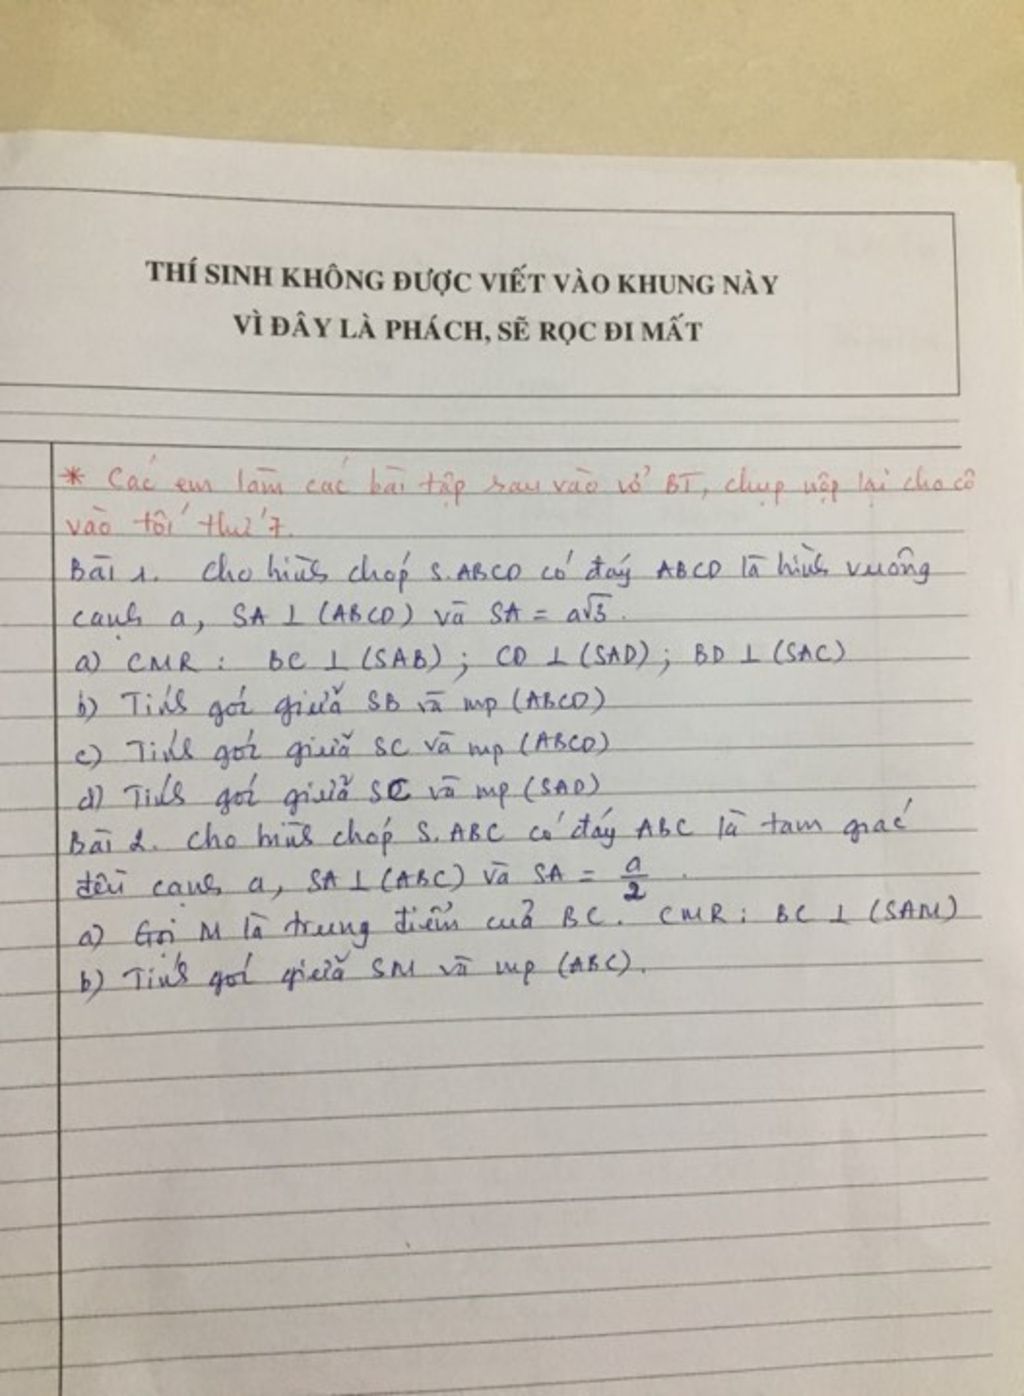 THÍ SINH KHÔNG ĐƯỢC VIẾT VÀO KHUNG NÀY
VÌ ĐÂY LÀ PHÁCH, SẼ RỌC ĐI MẤT
* Các em làm các bài tập sau vào vở BT, chụp nộp lại cho cô
vào tối thứ 7.
Bài 1. Cho hình chóp S.ABCD có đáy ABCD là hình vuông
cạnh a, SA ⊥ (ABCD) và SA = a√3.
a) CMR : BC ⊥ (SAB) ; CD ⊥ (SAD) ; BD ⊥ (SAC)
b) Tính góc giữa SB và mp (ABCD)
c) Tính góc giữa SC và mp (ABCD)
d) Tính góc giữa SC và mp (SAD)
Bài 2. Cho hình chóp S.ABC có đáy ABC là tam giác
đều cạnh a, SA ⊥ (ABC) và SA = a/2.
a) Gọi M là trung điểm của BC. CMR : BC ⊥ (SAM)
b) Tính góc giữa SM và mp (ABC).